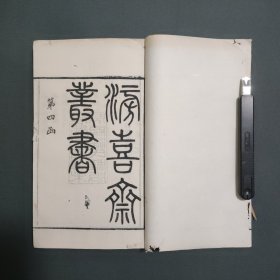 滂喜齋
叢書
第四函